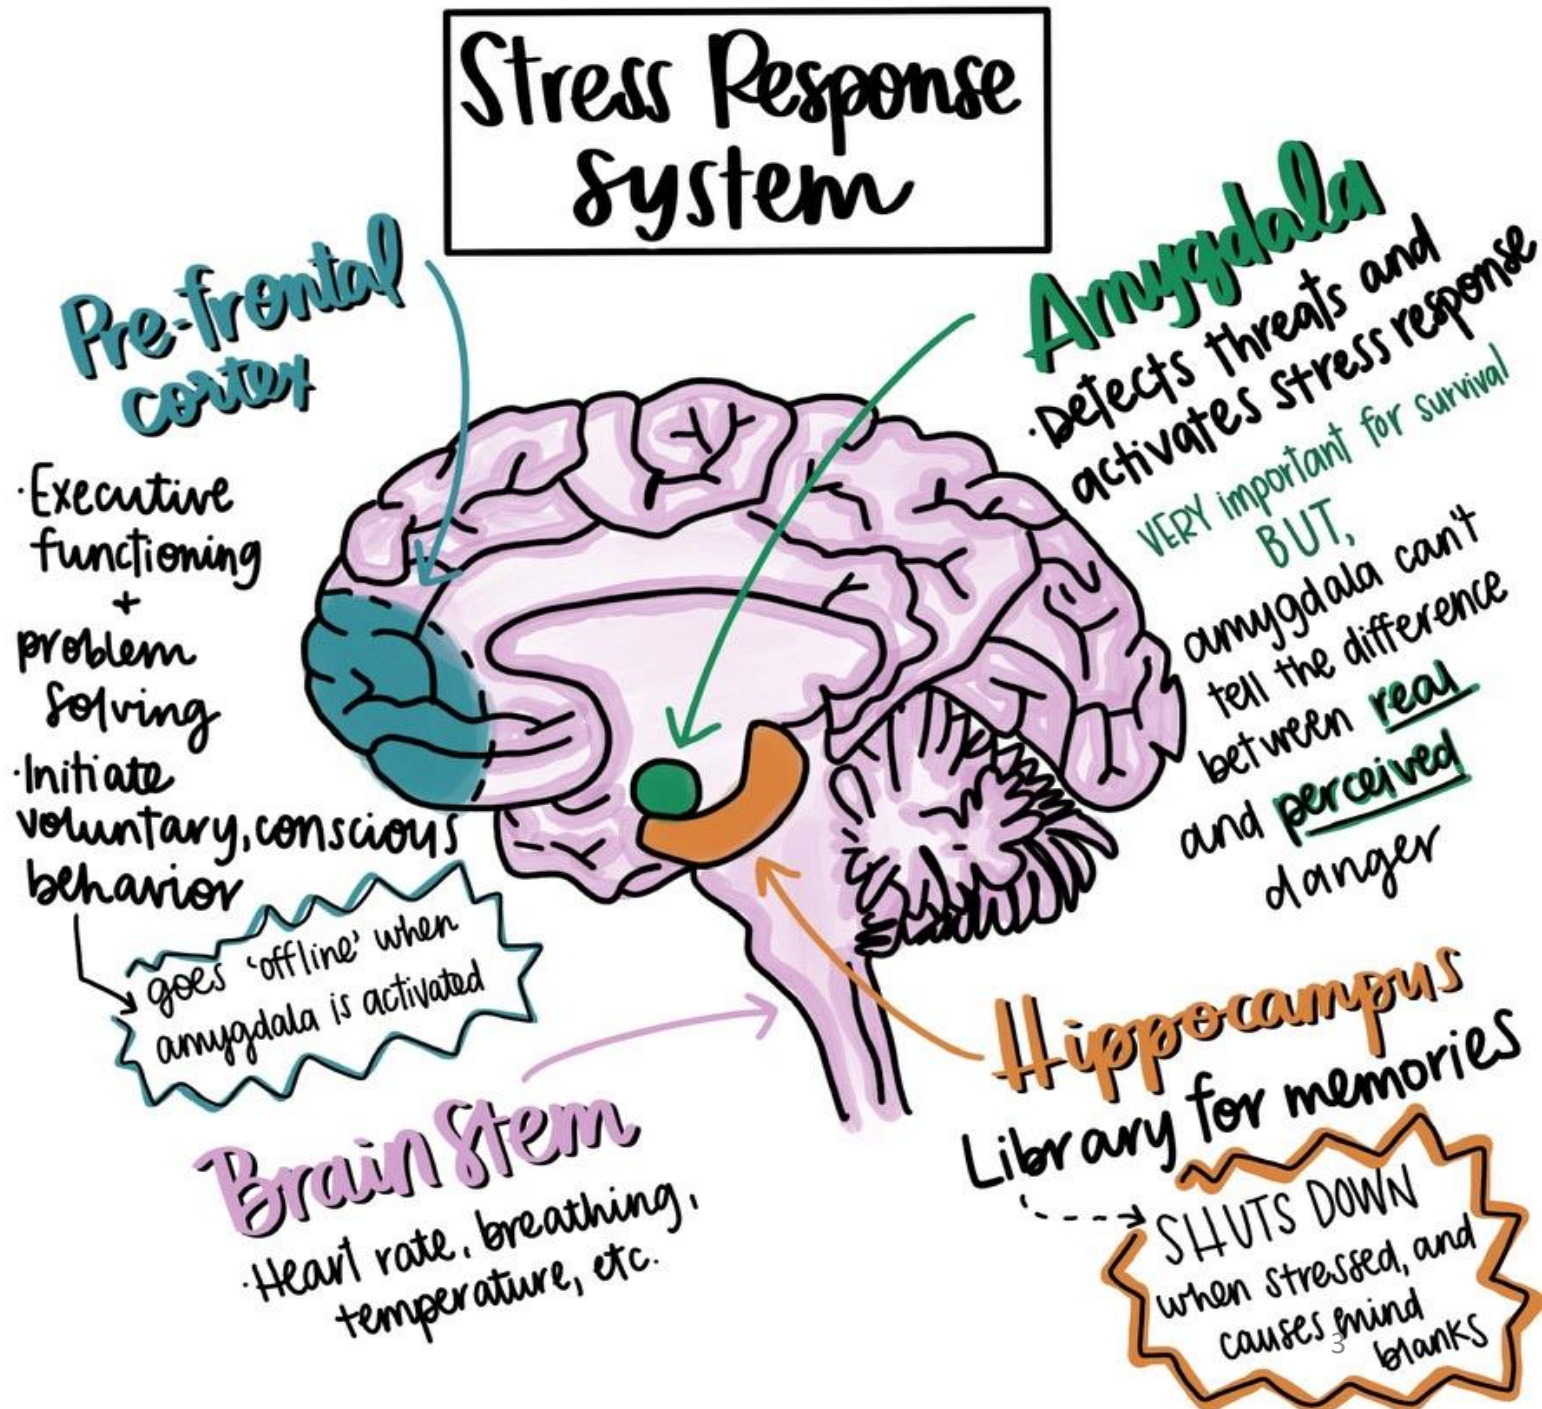 Stress Response
System
Pre-frontal
cortex
·Executive
functioning
+
problem
solving
·Initiate
voluntary, conscious
behavior
goes 'offline' when
amygdala is activated
Amygdala
·Detects threats and
activates stress response
VERY important for survival
BUT,
amygdala can't
tell the difference
between real
and perceived
danger
Brain Stem
·Heart rate, breathing,
temperature, etc.
Hippocampus
Library for memories
SHUTS DOWN
when stressed, and
causes mind
blanks
3